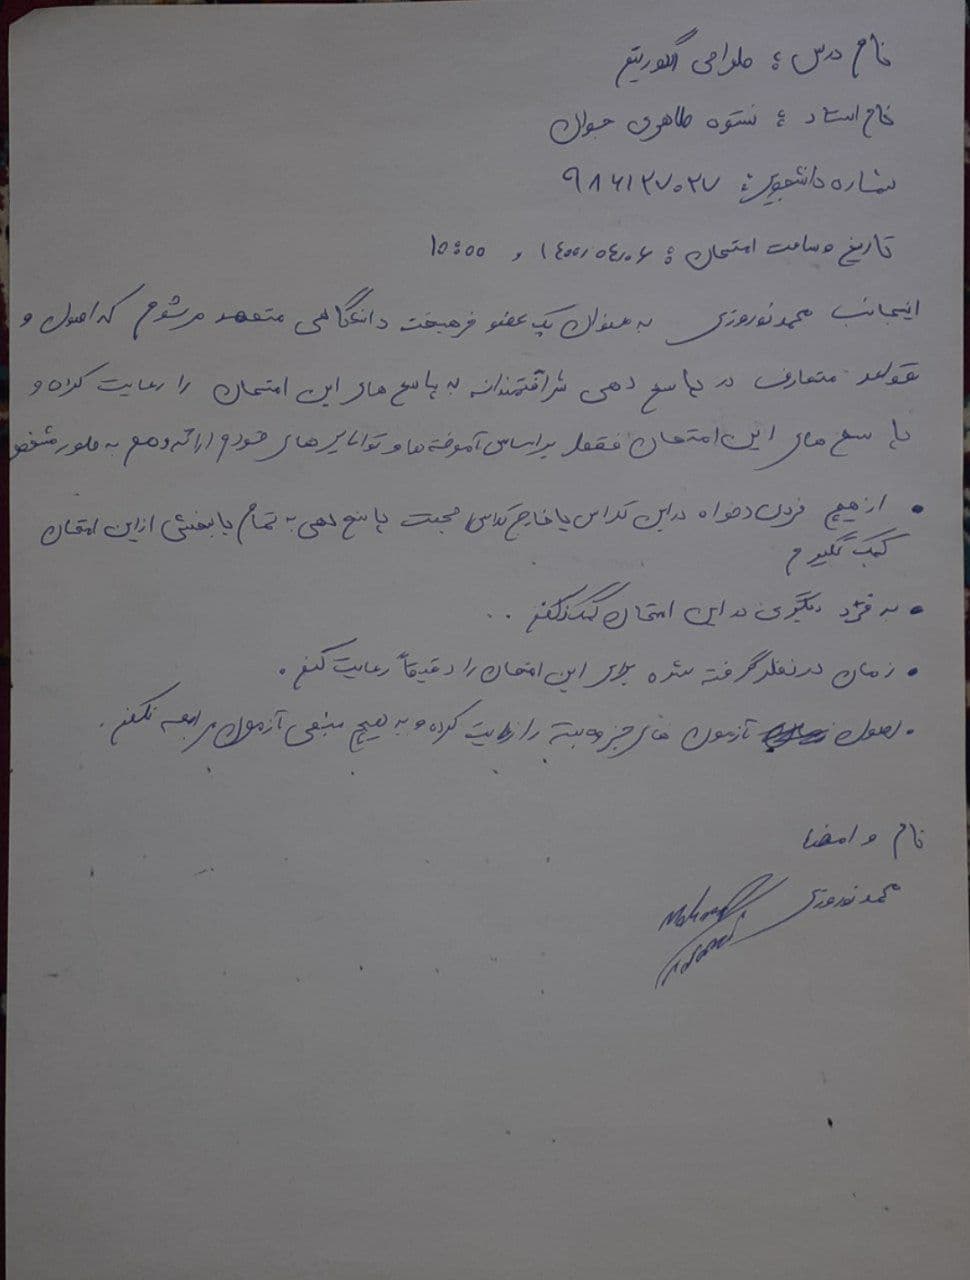 نام درس : طراحی الگوریتم
نام استاد : نستوه طاهری جوان
شماره دانشجویی : ۹۸۶۱۳۷۰۳۷
تاریخ و ساعت امتحان : ۱۴۰۰/۰۴/۰۶ و ۱۰:۰۰
اینجانب محمد نوروزی به عنوان یک عضو فرهیخته دانشگاهی متعهد می شوم که اصول و
قواعد متعارف در پاسخ دهی شرافتمندانه به پاسخ های این امتحان را رعایت کرده و
پاسخ های این امتحان فقط بر اساس آموخته ها و توانایی های خودم ارائه دهم به طور مشخص
• از هیچ فردی دخواه در این کلاس یا خارج کلاس جهت پاسخ دهی به تمام یا بخشی از این امتحان
کمک نگیرم
• به فرد دیگری در این امتحان کمک نکنم ..
• زمان در نظر گرفته شده برای این امتحان را دقیقاً رعایت کنم .
• اصول آزمون های جزوه بسته را رعایت کرده و به هیچ منبعی آزمون مراجعه نکنم .
نام و امضا
محمد نوروزی